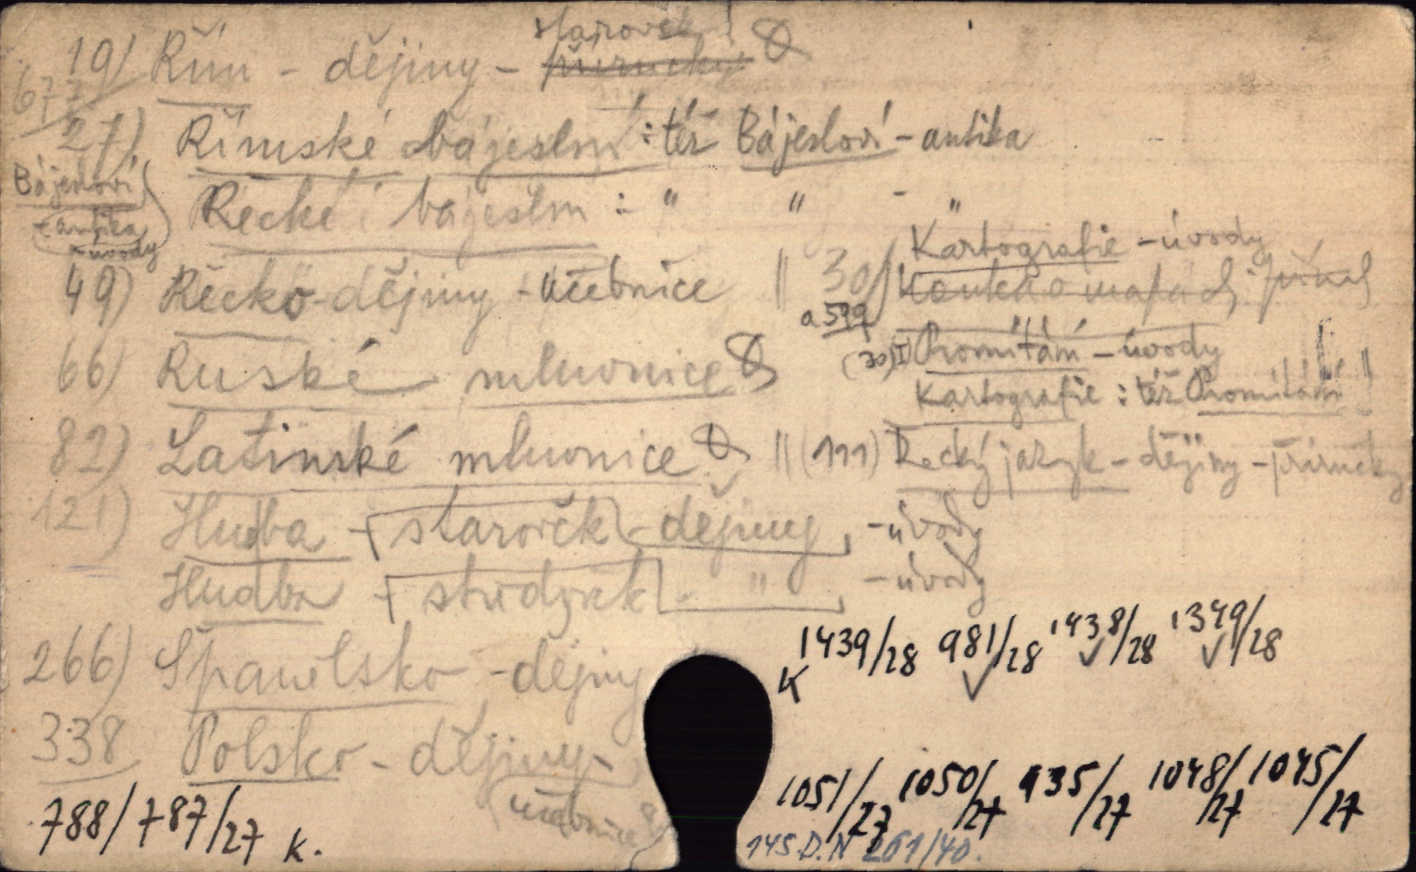 starověk
19) Řím - dějiny - příručky
677
27) Římské bájesloví : též Bájesloví - antika
Bájesloví
- antika
- úvody
Řecké bájesloví : " " - "
49) Řecko - dějiny - učebnice || 30)
Kartografie - úvody
a 599
66) Ruské mluvnice
(30) I Promítám - úvody
Kartografie : též Promítám
82) Latinské mluvnice || (111) Řecký jazyk - dějiny - příručky
121) Hudba - starověk - dějiny, - úvody
Hudba - středověk - " , - úvody
266) Španělsko - dějiny
K 1439/28 981/28 1438/28 1349/28
338 Polsko - dějiny -
učebnice
1051/27 1050/27 935/27 1048/27 1045/27
788/787/27 K.
145 D.N 261/40.